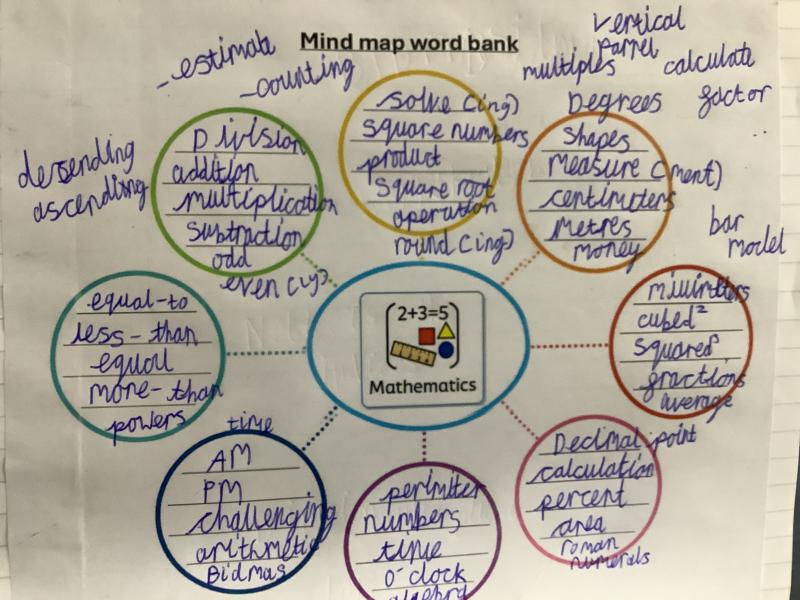 Mind map word bank
- estimate
- counting
vertical
parrel
multiples
calculate
Degrees
factor
dessending
assending
bar
model
Division
addition
multiplication
Subtraction
odd
even (ly)
solve (ing)
square numbers
product
square root
operation
round (ing)
Shapes
Measure (ment)
centimeters
Metres
money
equal-to
less-than
equal
more-than
powers
2+3=5
Mathematics
cubed²
squared
fractions
average
time
AM
PM
challenging
arithmetic
Bidmas
perimiter
numbers
time
o'clock
algebra
Decimal point
calculation
percent
area
roman
numerals